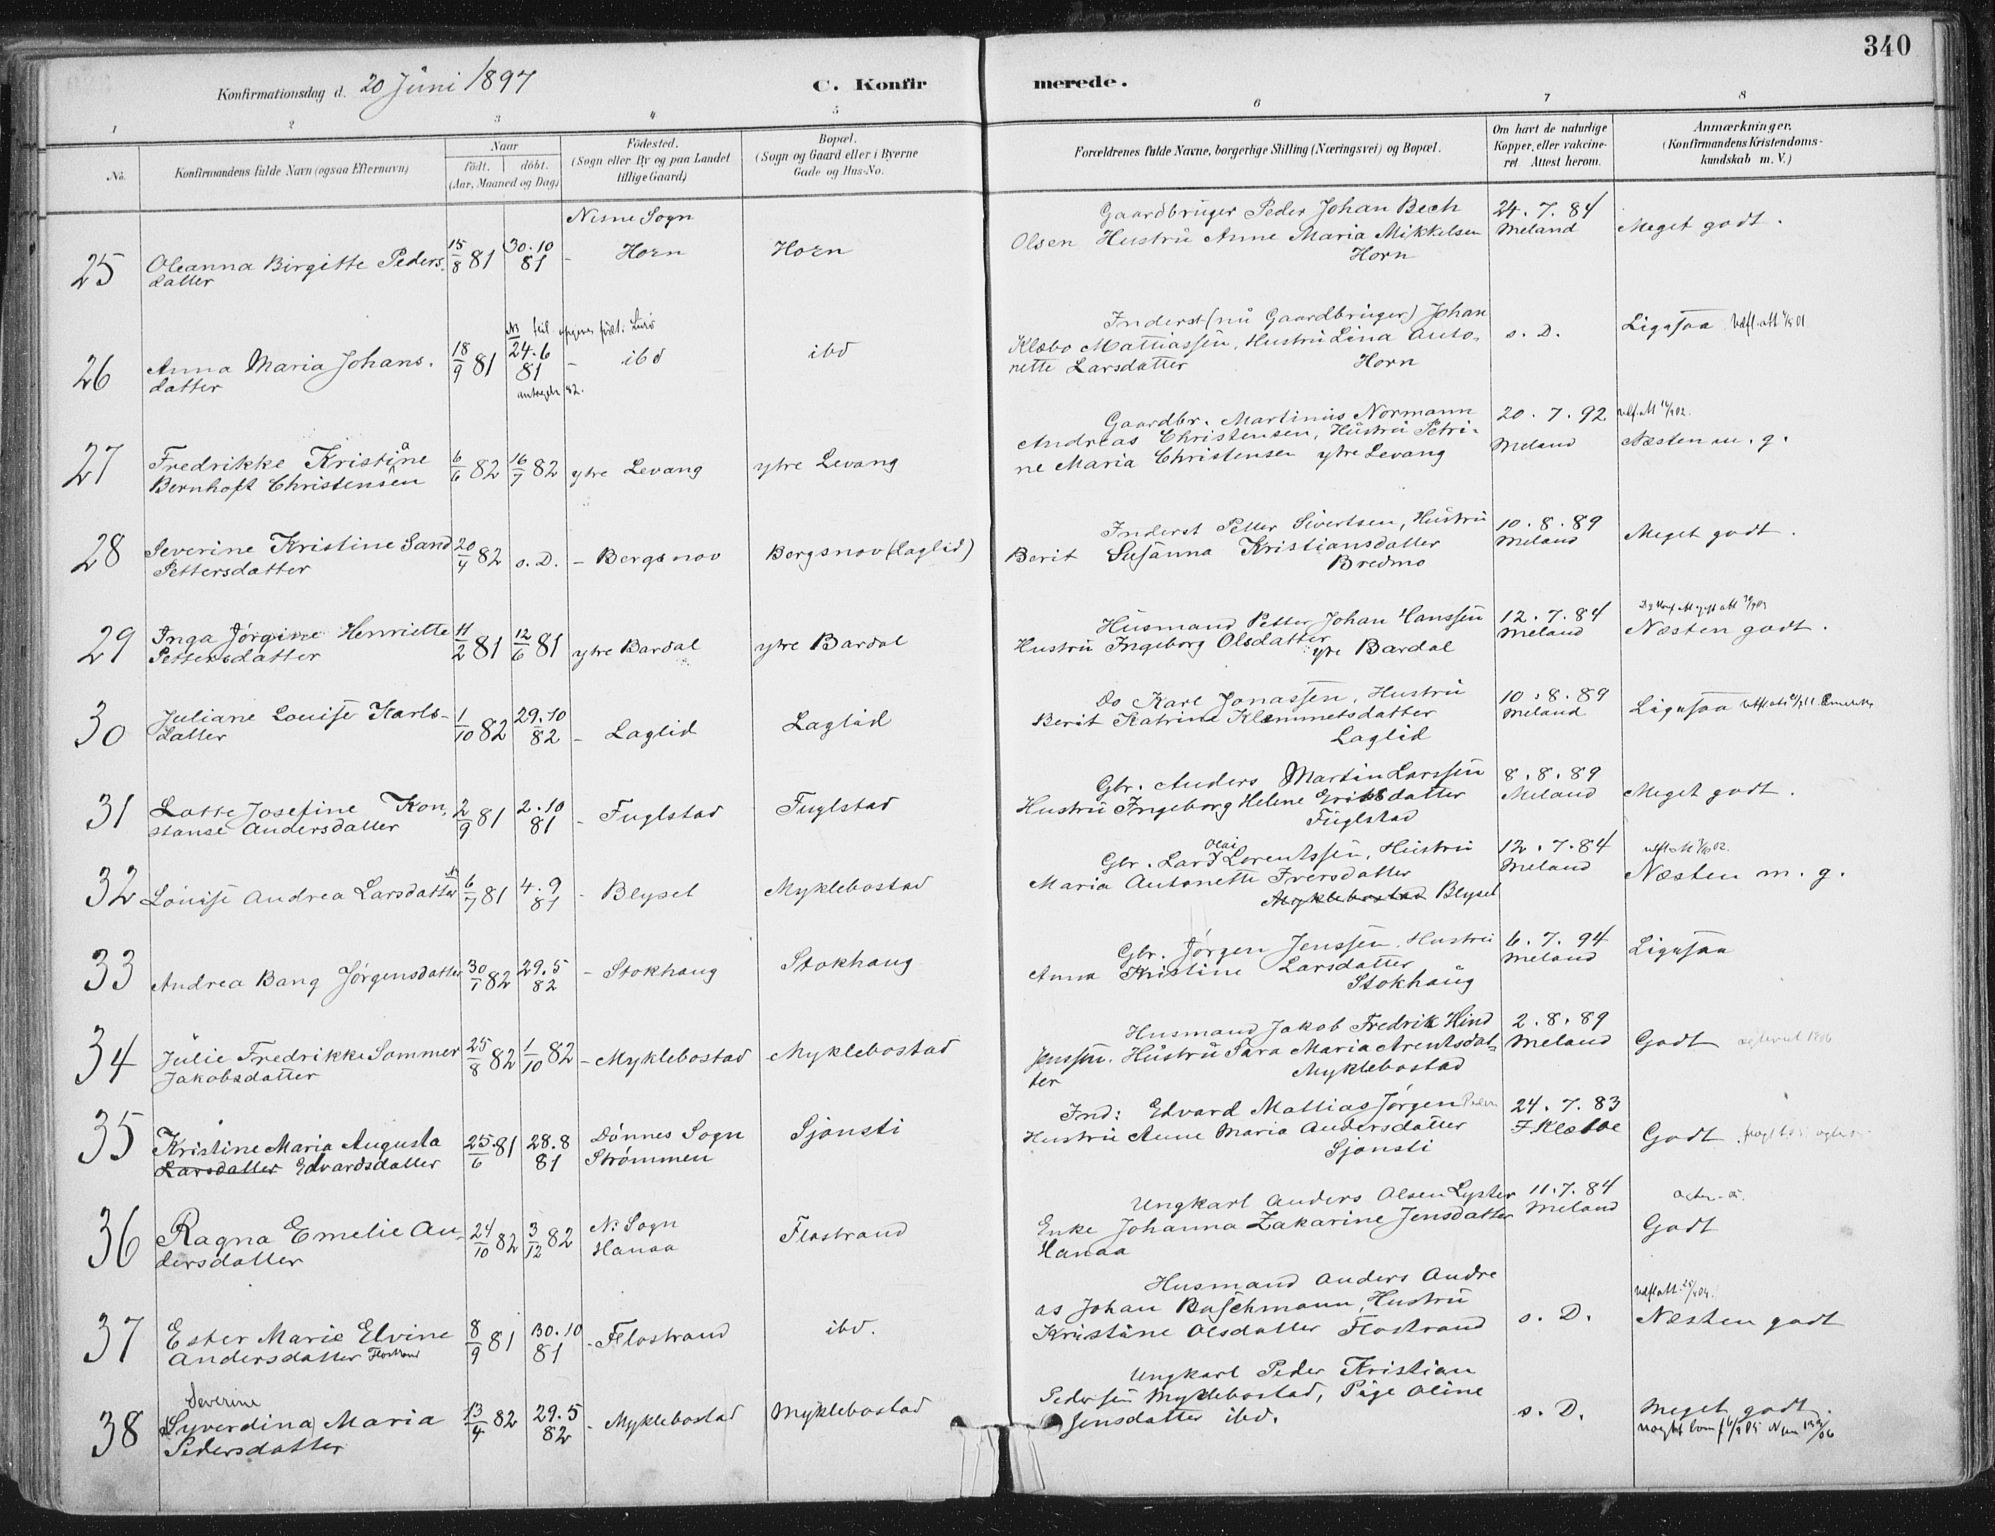 340
Konfirmationsdag d. 20 Juni 1897
C. Konfirmerede.
1 2 3 4 5 6 7 8
No.
Konfirmandens fulde Navn (ogsaa Efternavn)
Naar
Födt. döbt.
(Aar, Maaned og Dag)
Födested.
(Sogn eller By og paa Landet
tillige Gaard)
Bopæl.
(Sogn og Gaard eller i Byerne
Gade og Hus-No.
Forældrenes fulde Navne, borgerlige Stilling (Næringsvei) og Bopæl.
Om havt de naturlige
Kopper, eller vakcine-
ret. Attest herom.
Anmærkninger.
(Konfirmandens Kristendoms-
kundskab m. V.)
25 Oleanna Birgitte Peders-
datter
15/8 81 30.10 81
Nesne Sogn
- Horn
Horn
Gaardbruger Peder Johan Bech
Olsen Hustru Anne Maria Mikkelsen
Horn
24.7.84
Meland
Meget godt.
26 Anna Maria Johans-
datter
18/9 81 24.6 81
- ibd
ibd
Inderst (nu Gaardbruger) Johan
Klæbo Mattiassen, Hustru Lina Anto-
nette Larsdatter Horn
s. D.
Ligesaa
27 Fredrikke Kristine
Bernhoft Christensen
6/6 82 16/7 82
ytre Levang
ytre Levang
Gaardbr. Martinus Normann
Andreas Christensen, Hustru Petri-
ne Maria Christensen ytre Levang
20.7.92
Meland
Næsten m. g.
28 Severine Kristine Sand
Pettersdatter
20/4 82 s. D.
- Bergsnov
Bergsnov (Laglid)
Inderst Petter Sivertsen, Hustru
Berit Susanna Kristiansdatter
Bredmo
10.8.89
Meland
Meget godt.
29 Inga Jørgine Henriette
Pettersdatter
11/2 81 12/6 81
ytre Bardal
ytre Bardal
Husmand Petter Johan Hanssen
Hustru Ingeborg Olsdatter
ytre Bardal
12.7.84
Meland
Næsten godt.
30 Juliane Louise Karls-
datter
1/10 82 29.10 82
- Laglid
Laglid
Do Karl Jonassen, Hustru
Berit Katrine Klemmetsdatter
Laglid
10.8.89
Meland
Ligesaa
31 Lotte Josefine Kon-
stanse Andersdatter
2/9 81 2.10 81
- Fuglstad
Fuglstad
Gbr. Anders Martin Larssen
Hustru Ingeborg Helene Eriksdatter
Fuglstad
8.8.89
Meland
Meget godt.
32 Louise Andrea Larsdatter
6/7 81 4.9 81
- Blyset
Myklebostad
Gbr. Lars Olai Lorentssen, Hustru
Maria Antonette Iversdatter
Myklebostad Blyset
12.7.84
Meland
Næsten m. g.
33 Andrea Bang Jørgensdatter
30/1 82 29.5 82
- Stokhaug
Stokhaug
Gbr. Jørgen Jenssen, Hustru
Anna Kristine Larsdatter
Stokhaug
6.7.94
Meland
Ligesaa
34 Julie Fredrikke Sommer
Jakobsdatter
25/8 82 1/10 82
- Myklebostad
Myklebostad
Husmand Jakob Fredrik Hind
Jenssen. Hustru Sara Maria Arentsdat-
ter Myklebostad
2.8.89
Meland
Godt
35 Kristine Maria Augusta
Larsdatter Edvardsdatter
25/6 81 28.8 81
Dønnes Sogn
Strømmen
Sjonsti
Ind: Edvard Mattias Jørgen
Hustru Anne Maria Andersdatter
Sjonsti
24.7.83
F. Klæboe
Godt
36 Ragna Emelie An-
dersdatter
24/10 82 3/12 82
N. Sogn
Hanaa
Flostrand
Ungkarl Anders Olsen Lyster
Enke Johanna Zakarine Jensdatter
Hanaa
11.7.84
Meland
Godt
37 Ester Marie Elvine
Andersdatter Flostrand
8/9 81 30.10 81
- Flostrand
ibd.
Husmand Anders Andre
as Johan Buschmann, Hustru
Kristine Olsdatter Flostrand
s. D.
Næsten godt
38 Severine
(Syverdina) Maria
Pedersdatter
13/4 82 29.5 82
- Myklebostad
Myklebostad
Ungkarl Peder Kristian
Pedersen Myklebostad, Pige Oline
Jensdatter ibd.
s. D.
Meget godt.